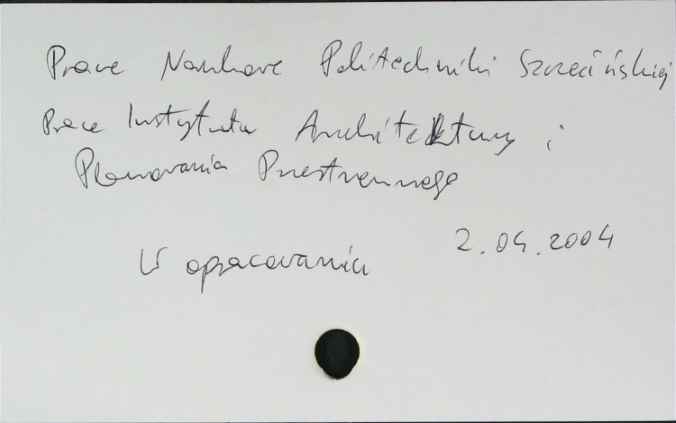 Prace Naukowe Politechniki Szczecińskiej
Prace Instytutu Architektury i
Planowania Przestrzennego
W opracowaniu
2.04.2004